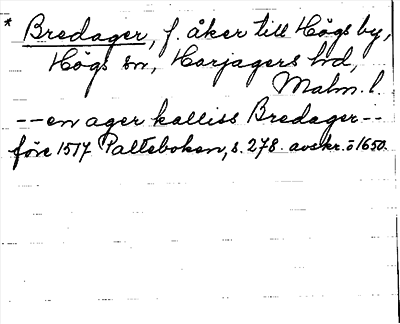 * Bredager, f. åker till Högs by,
Högs sn, Harjagers hd,
Malm. l.
-- en ager kalliss Bredager --
före 1517 Palteboken, s. 278. avskr. ö 1650.